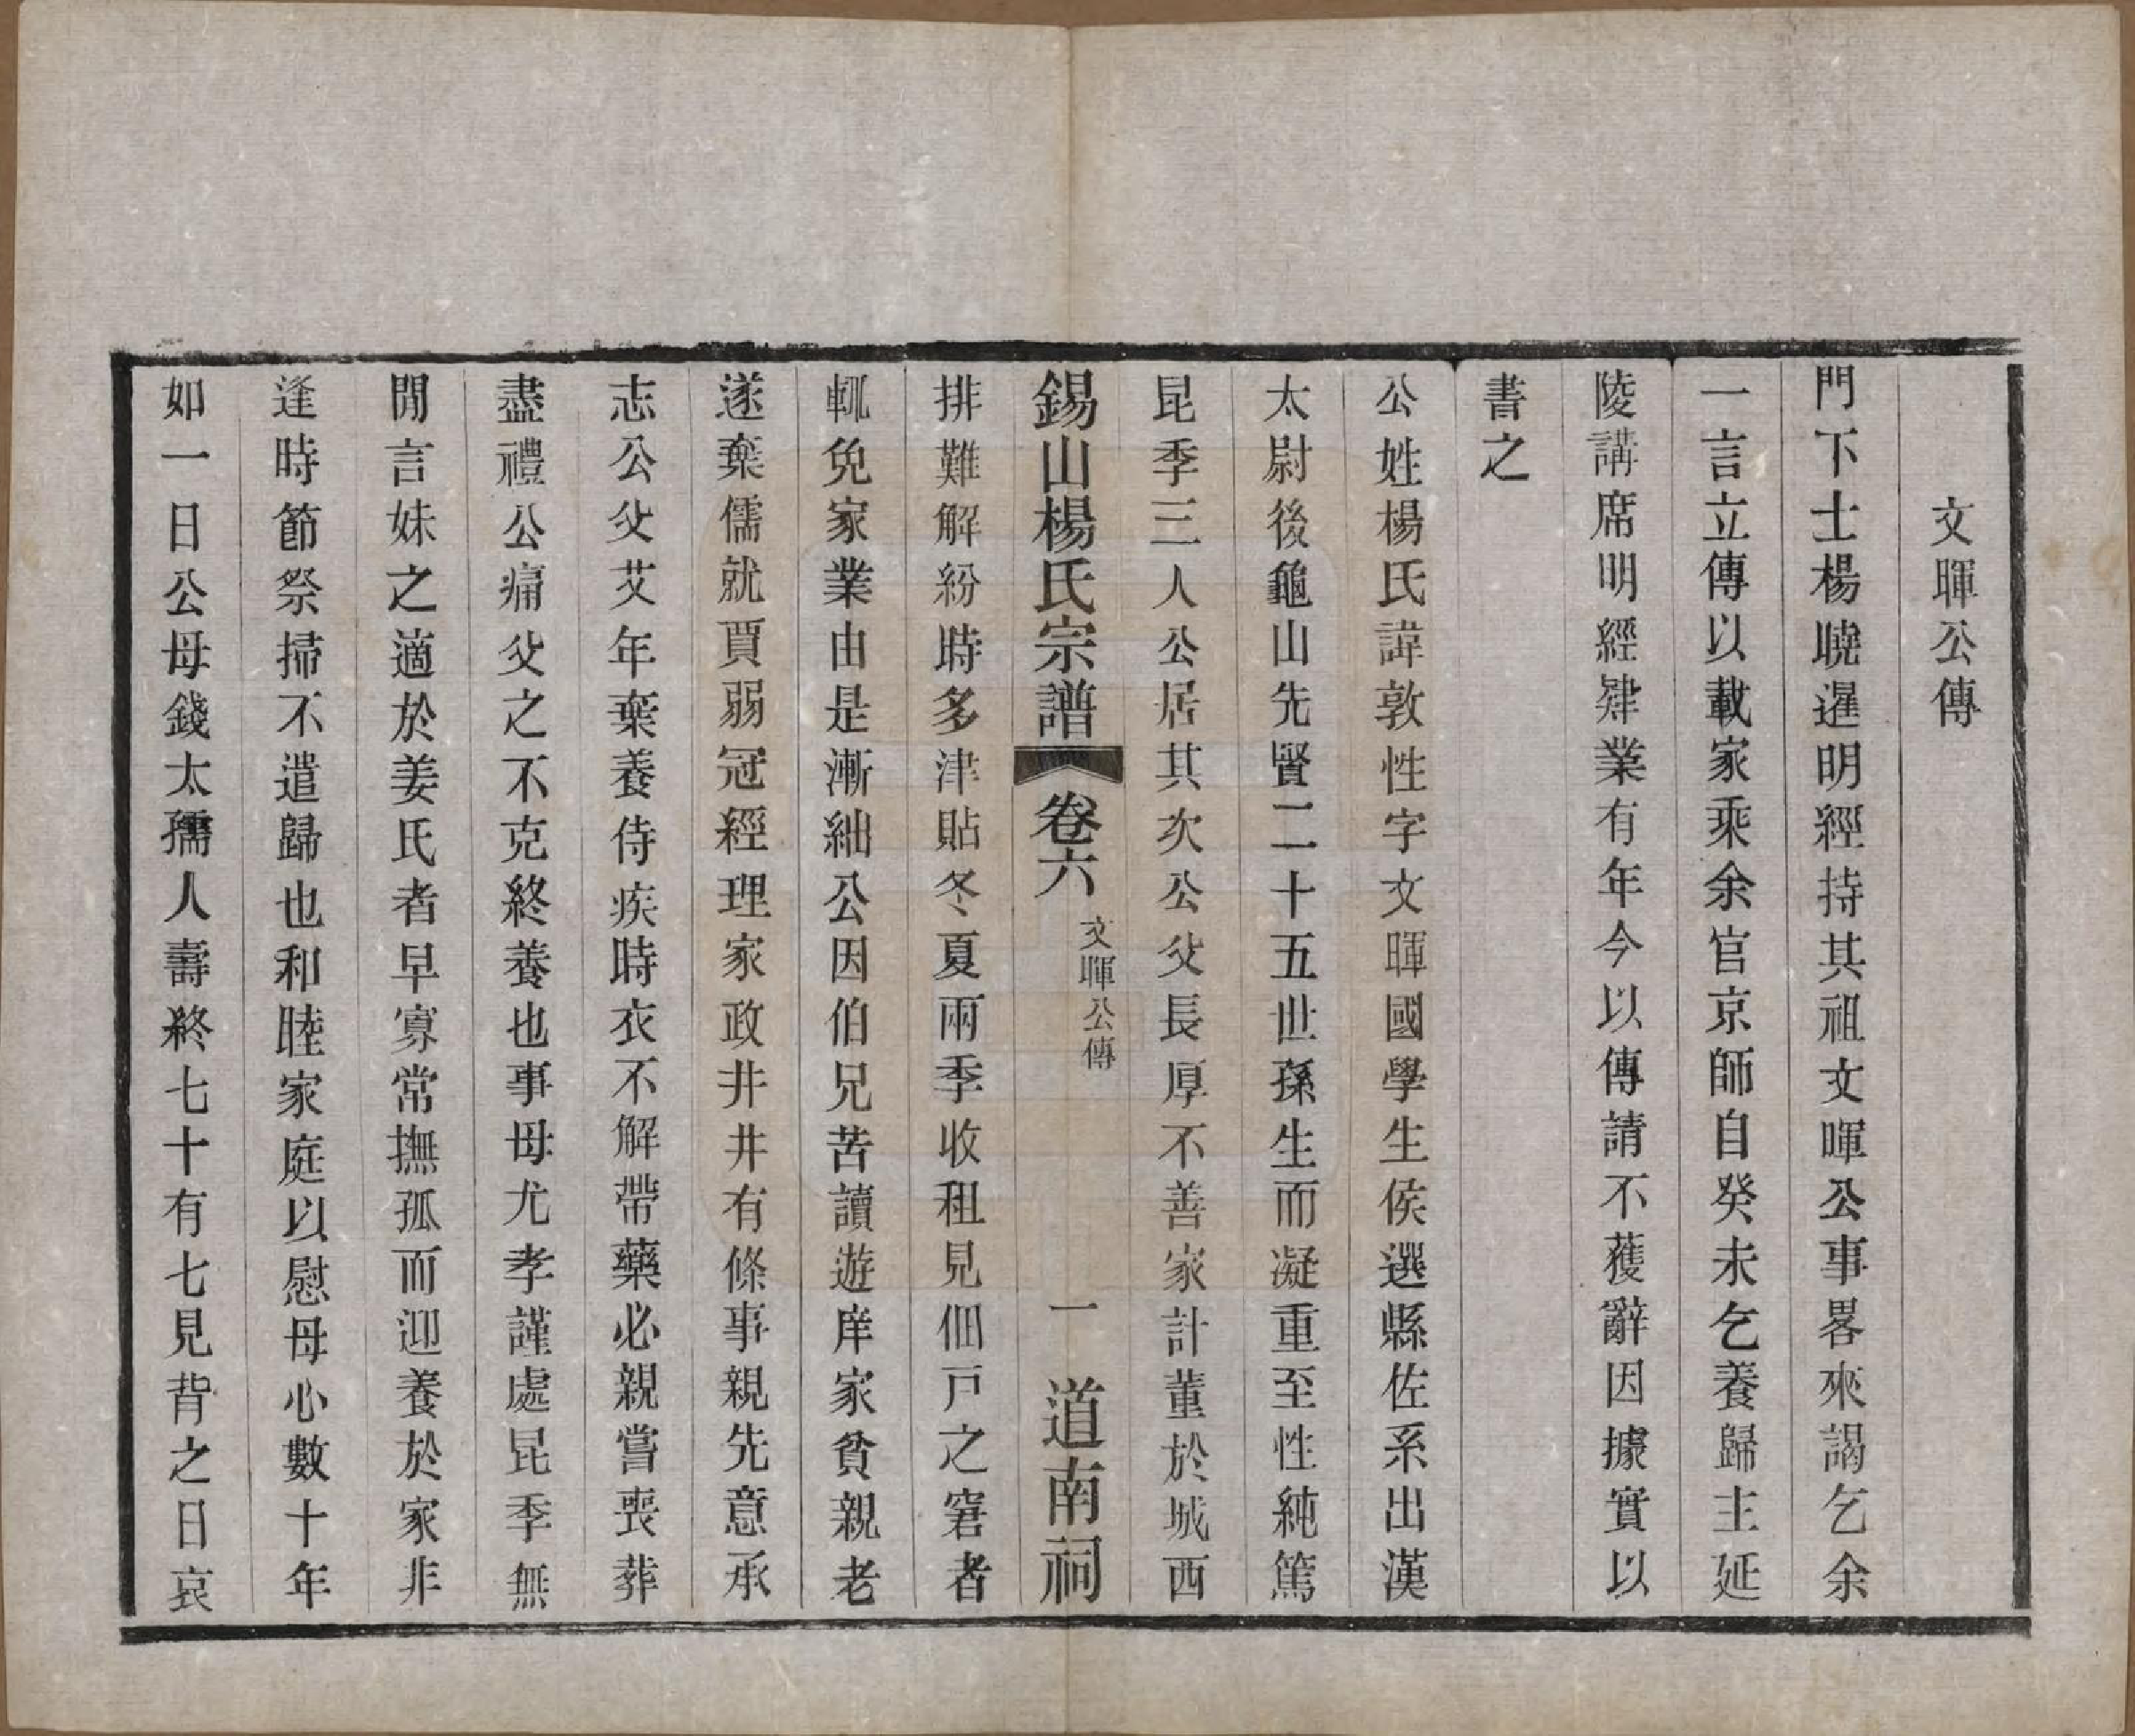 文暉公傳
門下士楊曉暹明經持其祖文暉公事畧來謁乞余
一言立傳以載家乘余官京師自癸未乞養歸主延
陵講席明經肄業有年今以傳請不獲辭因據實以
書之
公姓楊氏諱敦性字文暉國學生侯選縣佐系出漢
太尉後龜山先賢二十五世孫生而凝重至性純篤
昆季三人公居其次公父長厚不善家計董於城西
錫山楊氏宗譜 卷六 文暉公傳 一 道南祠
排難解紛時多津貼冬夏兩季收租見佃戸之窘者
輒免家業由是漸絀公因伯兄苦讀遊庠家貧親老
遂棄儒就賈弱冠經理家政井井有條事親先意承
志公父艾年棄養侍疾時衣不解帶藥必親嘗喪葬
盡禮公痛父之不克終養也事母尤孝謹處昆季無
閒言妹之適於姜氏者早寡常撫孤而迎養於家非
逢時節祭掃不遣歸也和睦家庭以慰母心數十年
如一日公母錢太孺人壽終七十有七見背之日哀